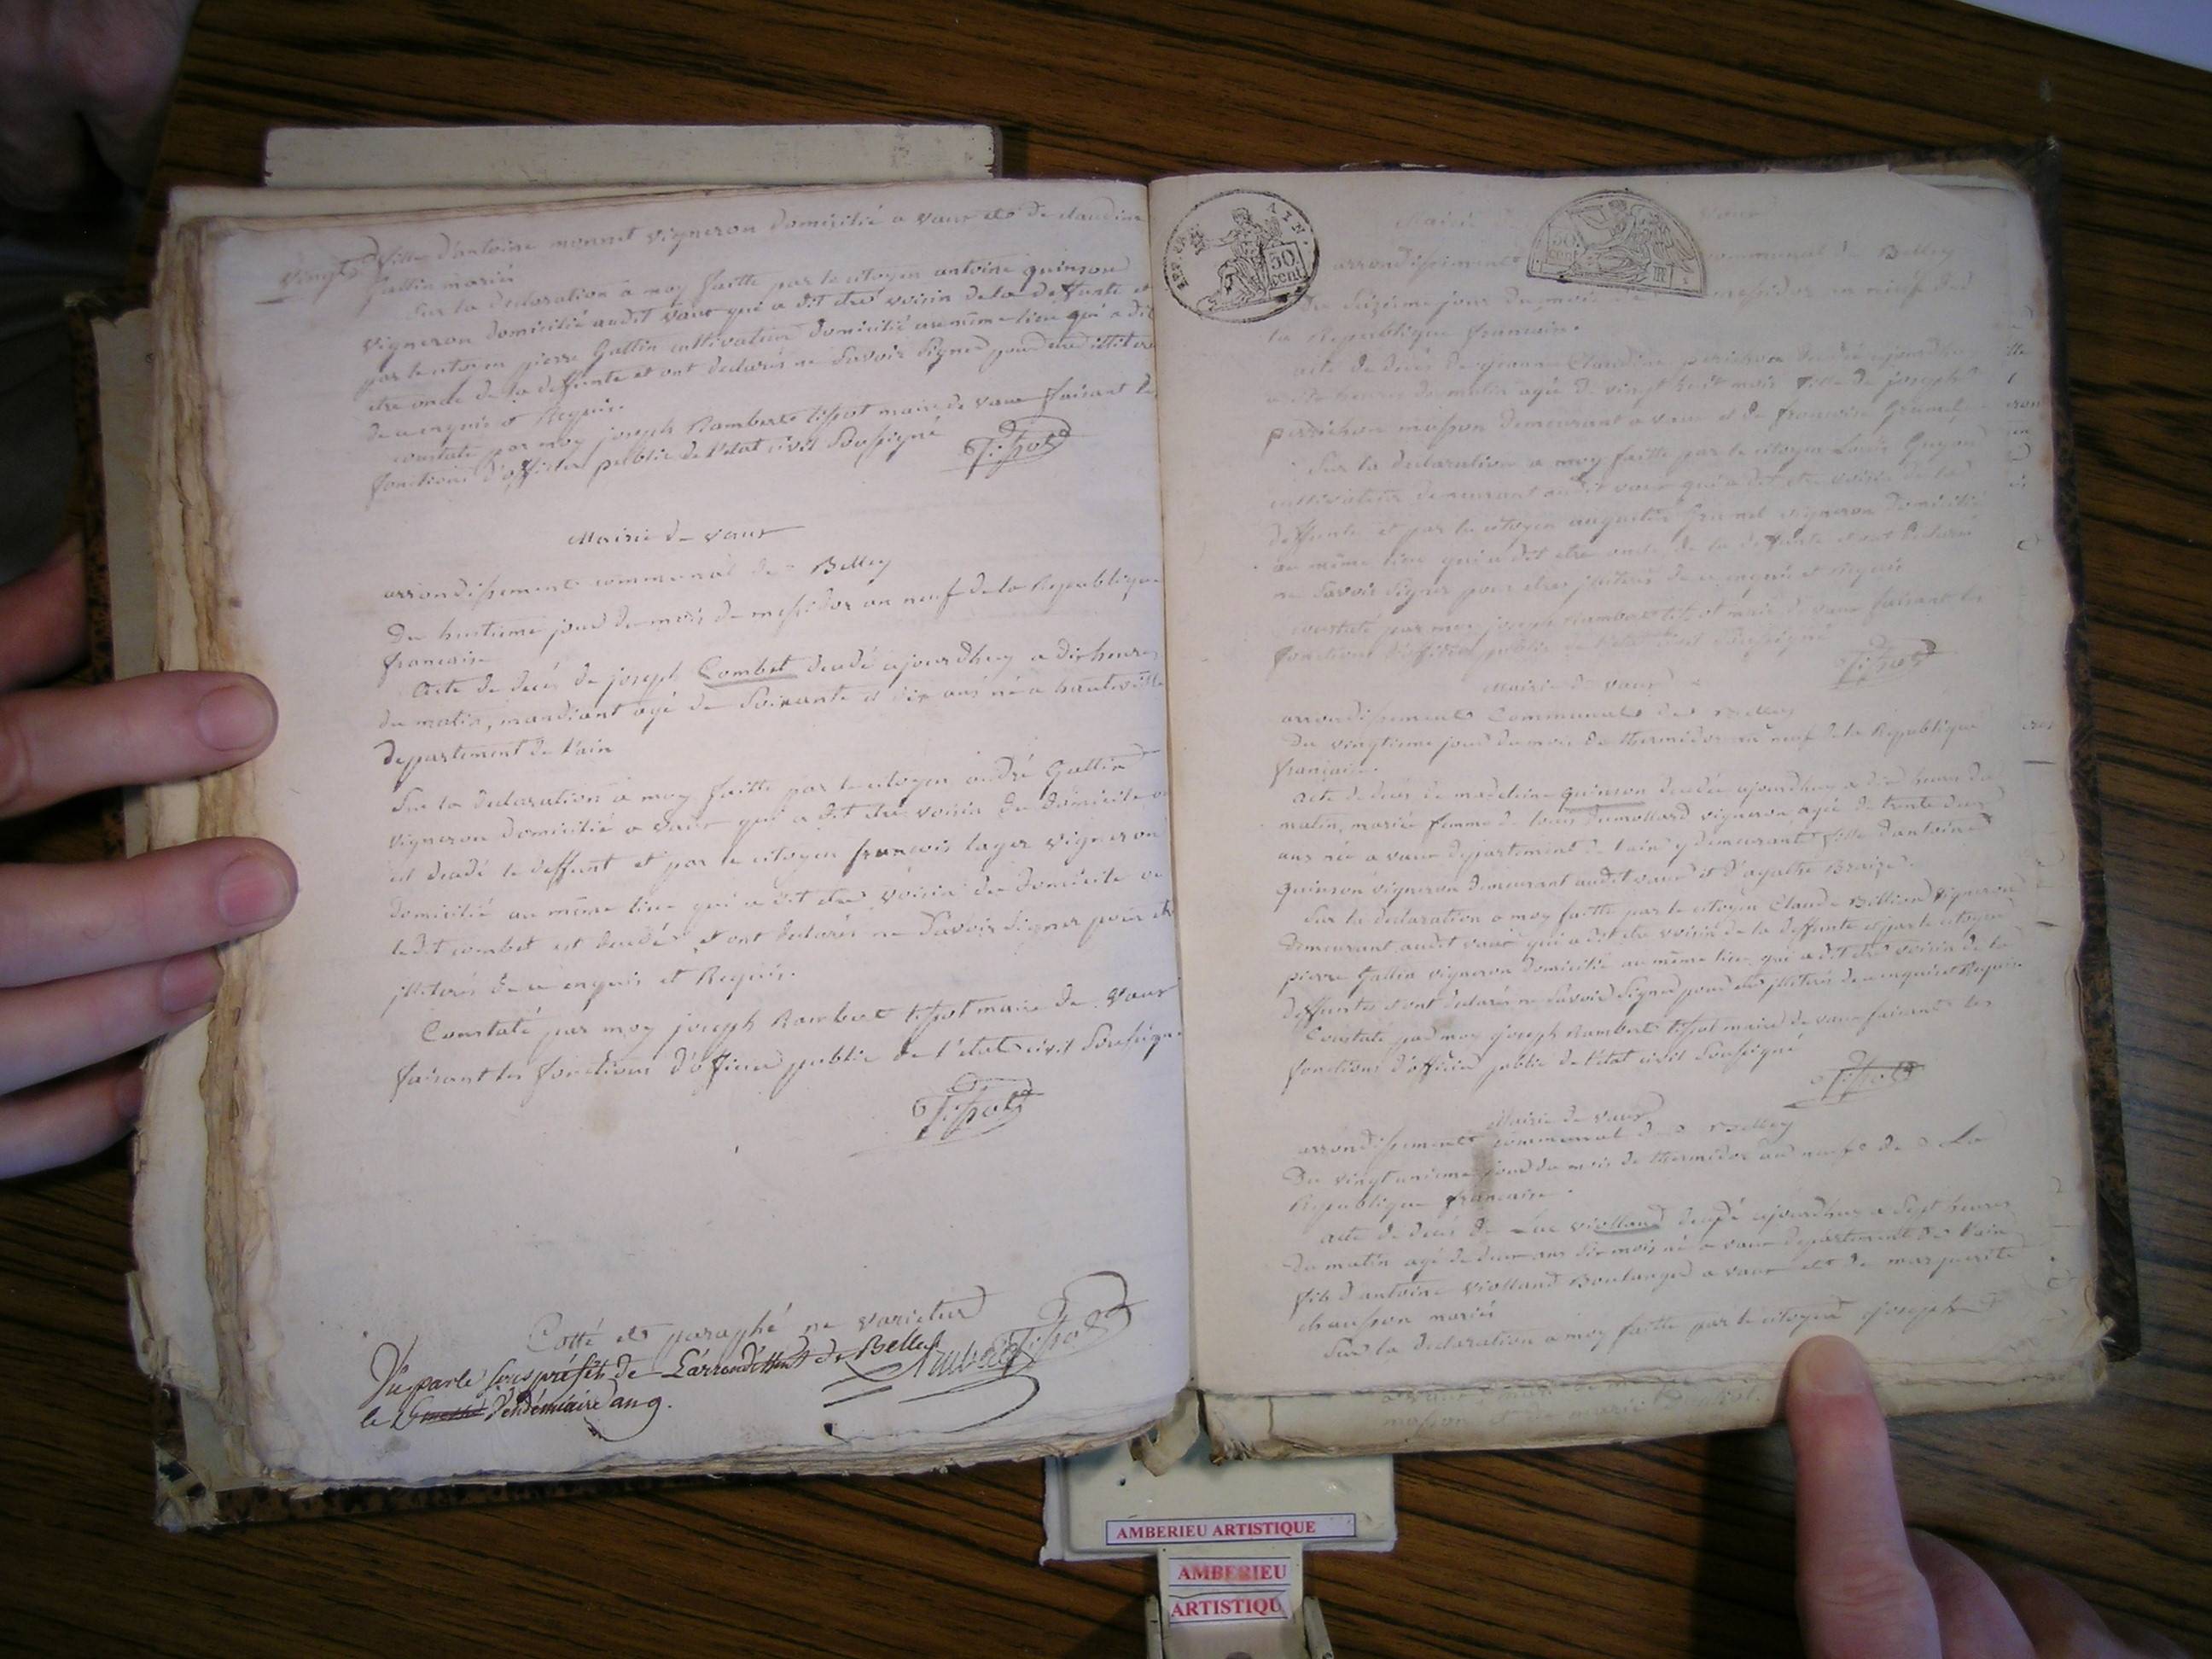 vingt
fille d'antoine monnet vigneron domicilié a vaux et de claudine
Gallin mariés
Sur la declaration a moy faitte par le citoyen antoine quinson
vigneron domicilié audit vaux qui a dit etre voisin de la deffunte et
par le citoyen pierre Gallin cultivateur domicilié au même lieu qui a dit
etre oncle de la deffunte et ont declarés ne savoir signer pour etre illiteres
de ce enquis et Requis.
constaté par moy joseph Rambert tissot maire de vaux faisant les
fonctions d'officier public de l'etat civil soussigné
Tissot
Mairie de vaux
arrondissement communal de Belley
Du huitieme jour du mois de messidor an neuf de la Republique
francaise
Acte de decés de joseph Combet decedé ajourdhuy a dix heures
du matin, mandiant agé de soixante et dix ans né a hauteville
departement de l'ain
Sur la declaration a moy faitte par le citoyen andré Gallin
vigneron domicilié a vaux qui a dit etre voisin du domicile ou
est decedé le deffunt et par le citoyen françois layer vigneron
domicilié au même lieu qui a dit etre voisin du domicile ou
ledit combet est decedé et ont declarés ne savoir signer pour etre
illiterés de ce enquis et Requis.
Constaté par moy joseph Rambert tissot maire de vaux
faisant les fonctions d'officier public de l'etat civil soussigné
Tissot
Cotté et paraphé ne varietur
Tissot
Vu par le sous préfet de L'arrondissement de Belley
le Vendémiaire an 9.
REP. FRA.
50.
cent
50.
cent
Mairie vaux
arrondissement communal de Belley
Du seizieme jour du mois de messidor an neuf de
la Republique francaise.
acte de decés de jeanne Claudine perrichon decedée ajourdhuy
heures du matin agée de vingt huit mois fille de joseph
perrichon masson demeurant a vaux et de francoise
Sur la declaration a moy faitte par le citoyen Louis Guyon
cultivateur demeurant audit vaux qui a dit etre voisin de la
deffunte et par le citoyen augustin vigneron domicilié
au même lieu qui a dit etre oncle de la deffunte et ont declaré
ne savoir signer pour etre illiterés de ce enquis et requis
constaté par moy joseph Rambert tissot maire de vaux faisant les
fonctions d'officier public de l'etat civil soussigné
Tissot
Mairie de vaux
arrondissement Communal de Belley
Du vingtieme jour du mois de thermidor an neuf de la Republique
française.
Acte de decés de madelaine quinson decedée ajourdhuy a dix heures du
matin, mariée femme de louis Dumollard vigneron agée de trente deux
ans née a vaux departement de l'ain y demeurant fille d'antoine
quinson vigneron demeurant audit vaux et d'agathe Braize.
Sur la declaration a moy faitte par le citoyen Claude Billion vigneron
demeurant audit vaux qui a dit etre voisin de la deffunte et par le citoyen
pierre Gallin vigneron domicilié au même lieu qui a dit etre voisin de la
deffunte et ont declarés ne savoir signer pour etre illiterés de ce enquis et Requis.
Constaté par moy joseph Rambert tissot maire de vaux faisant les
fonctions d'officier public de l'etat civil soussigné
Tissot
Mairie de vaux
arrondissement communal de Belley
Du vingt unieme jour du mois de thermidor an neuf de La
Republique francaise.
acte de decés de Luc violland decedé ajourdhuy a sept heures
du matin agé de deux ans dix mois né a vaux departement de l'ain
fils d'antoine violland Boulanger a vaux et de marguerite
chausson mariés
Sur la declaration a moy faitte par le citoyen joseph
masson et de marie
AMBERIEU ARTISTIQUE
AMBERIEU
ARTISTIQU